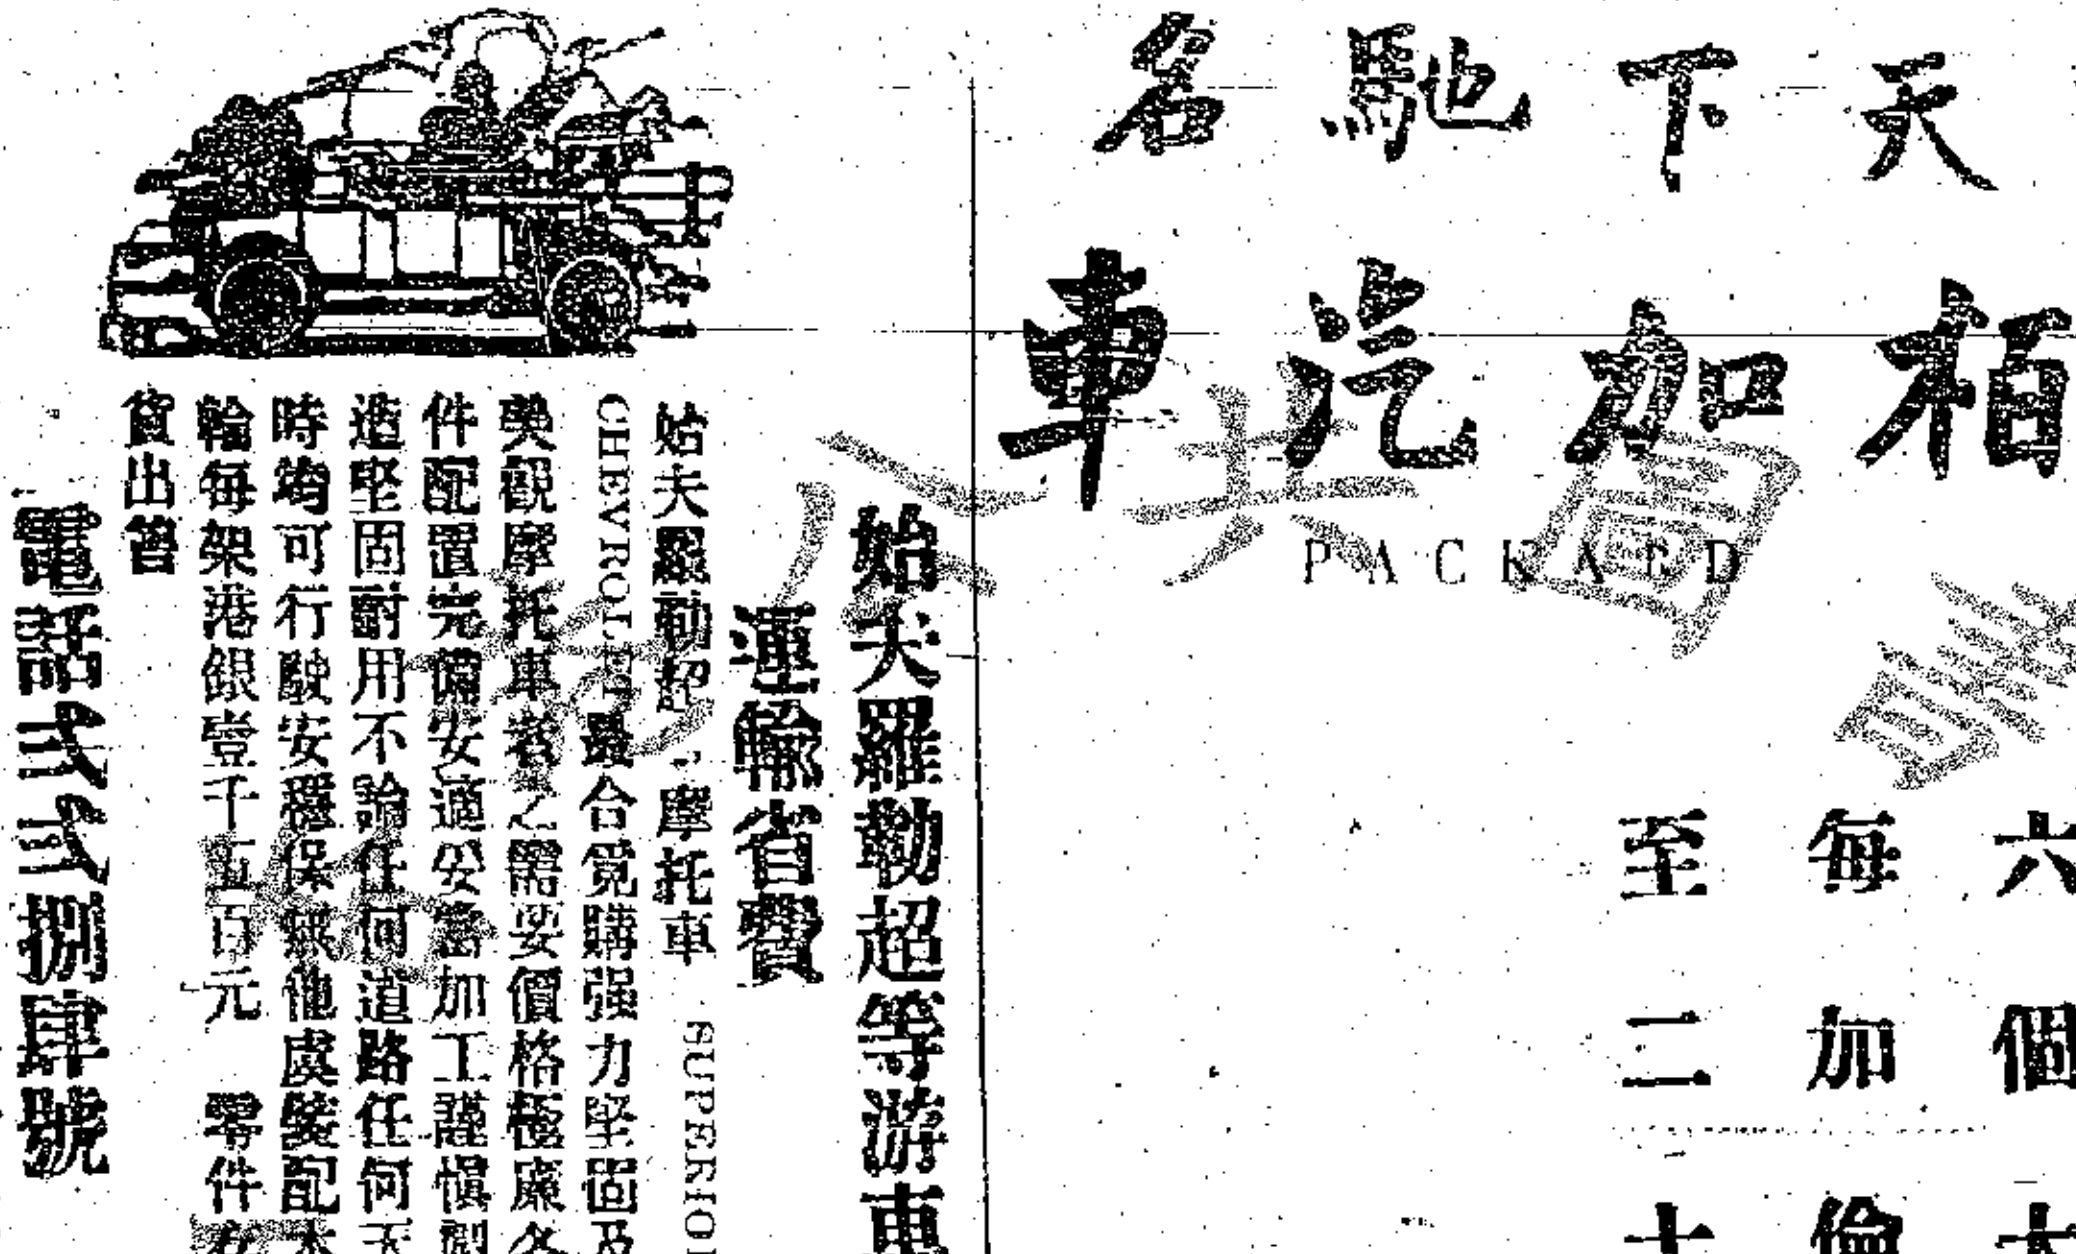 天下馳名
柏加汽車
PACKARD
六個
每加倫
至二十
始夫羅勒超等游車
運輸省費
始夫羅勒超 摩托車 SUPERIO
CHEVROLET 最合覓購强力堅固及
美觀摩托車者之需要價格極廉各
件配置完備安適妥當加工謹慎制
造堅固耐用不論任何道路任何天
時均可行駛安穩保無他虞裝配木
輪每架港銀壹千五百元 零件在
貨出售
電話弍弍捌肆號